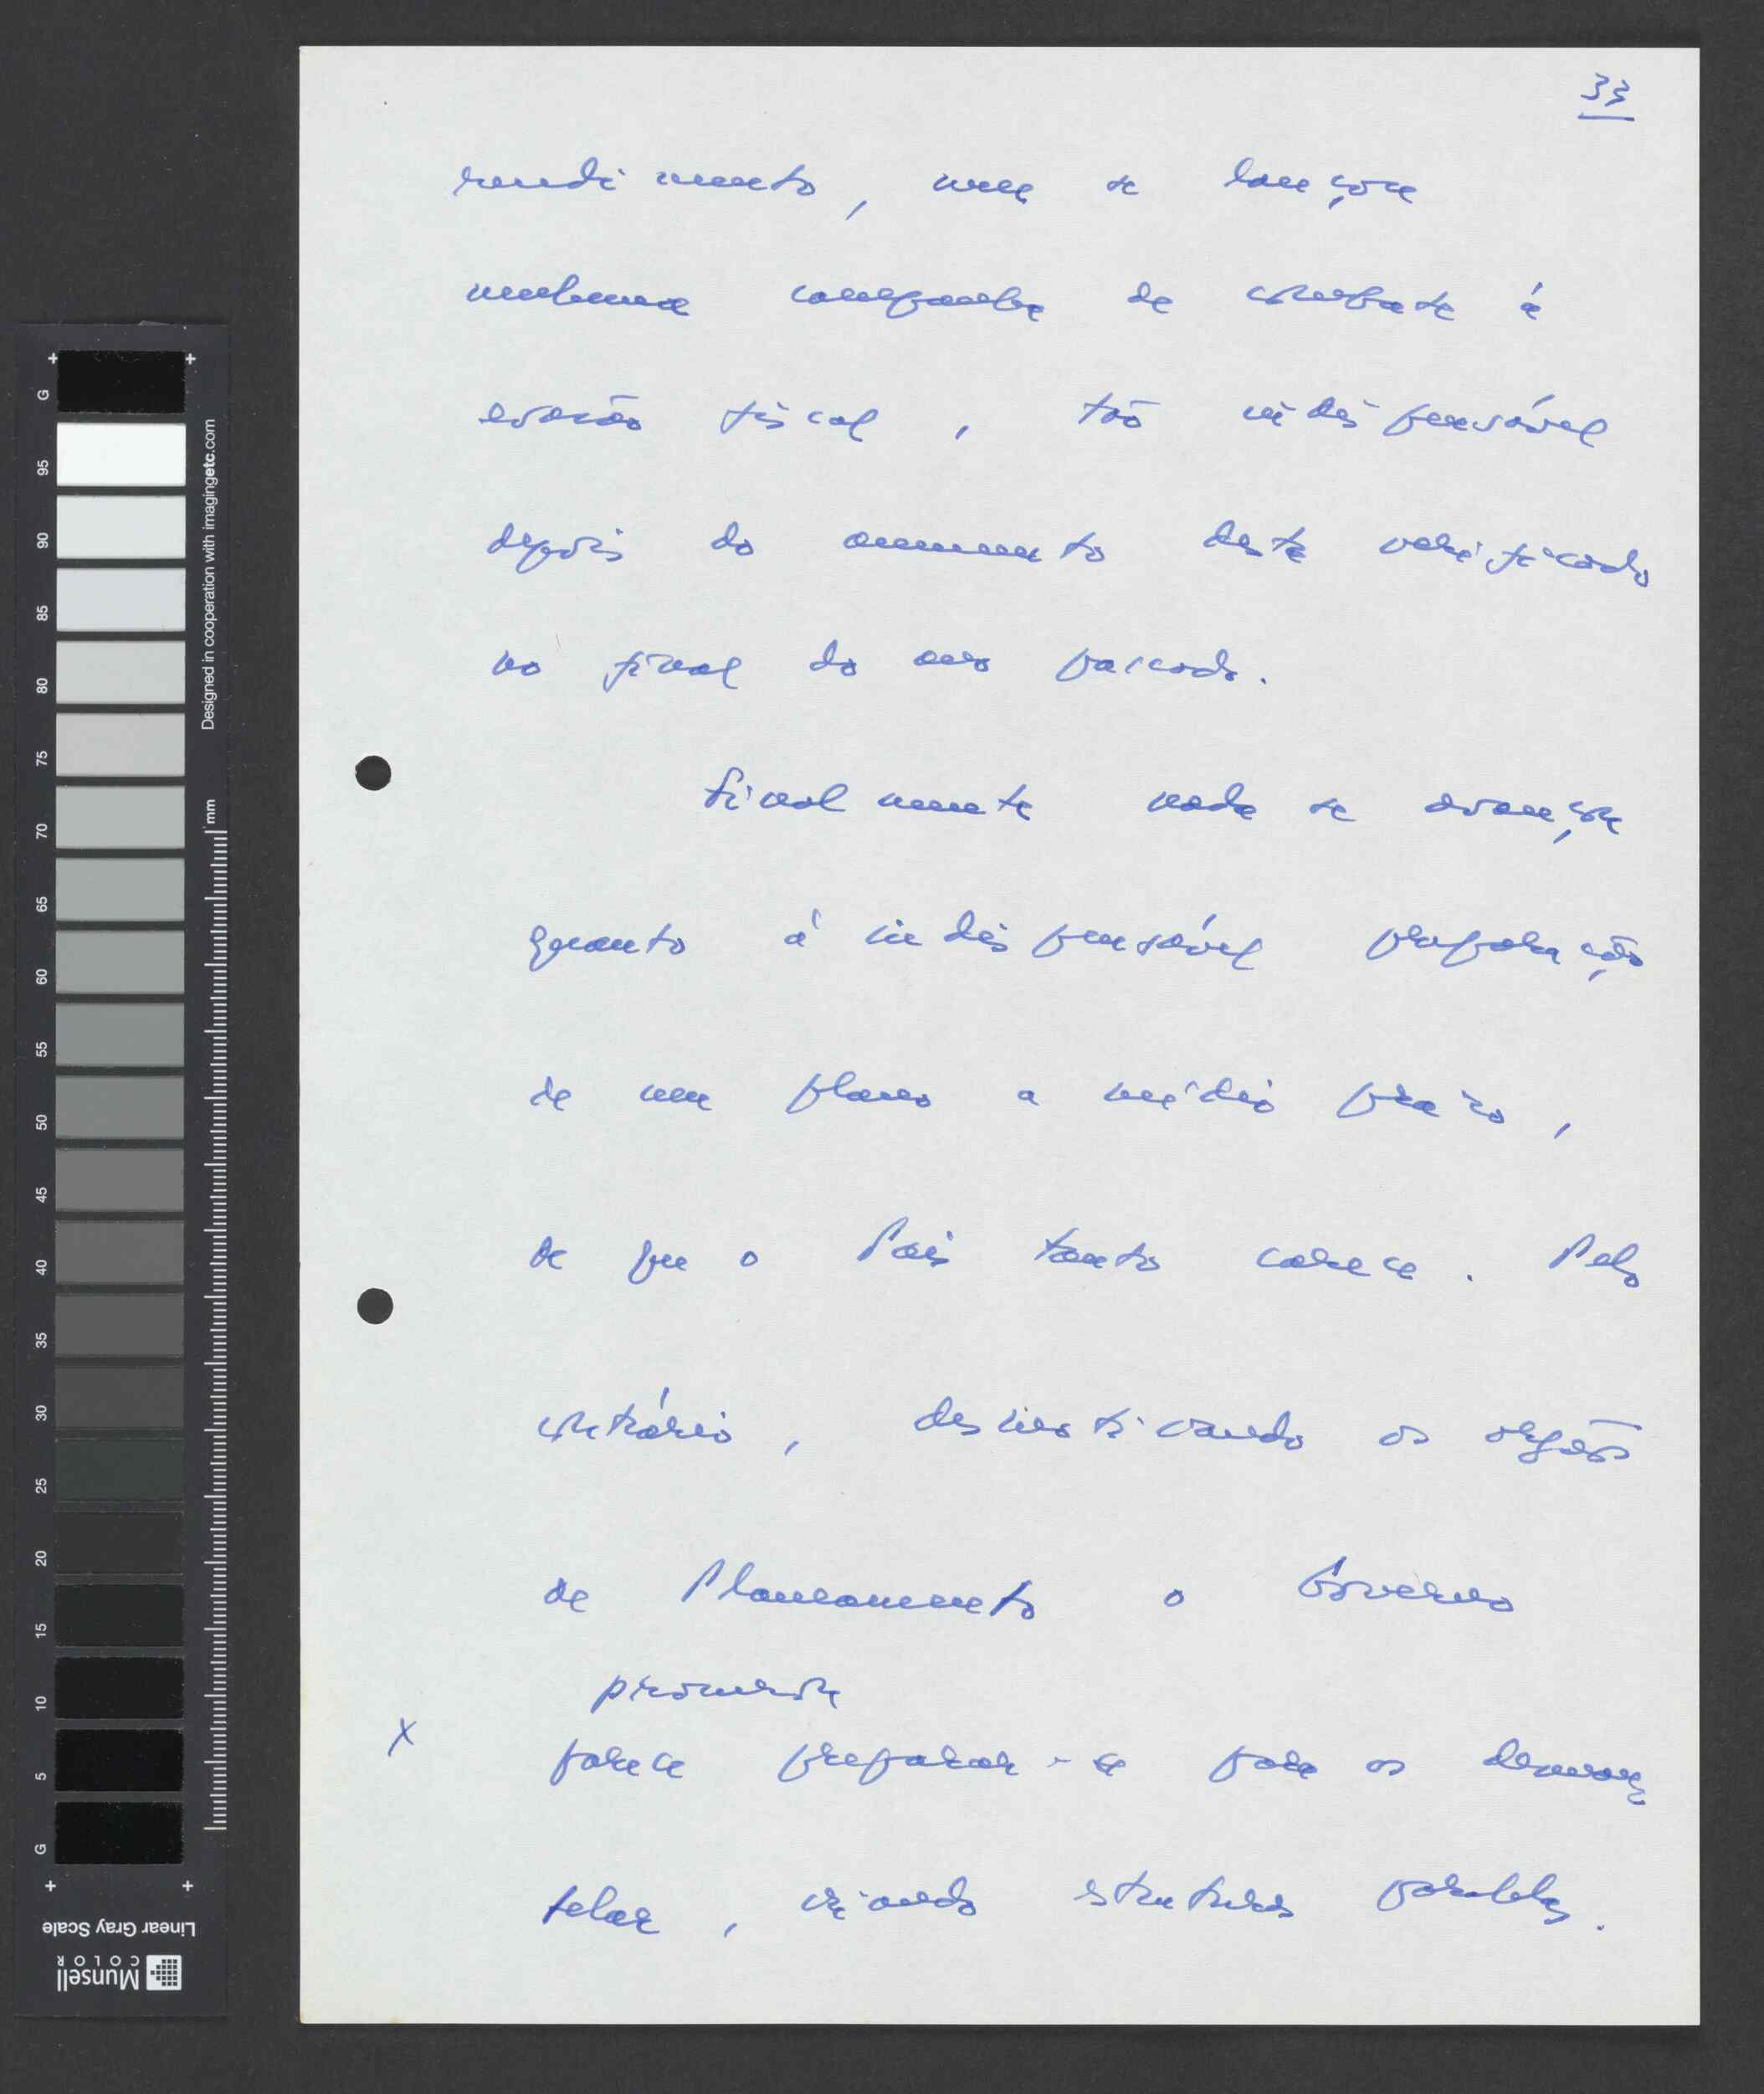 33
rendimento, nem se lançou
nenhuma campanha de combate à
evasão fiscal, tão indispensável
depois do aumento desta verificado
no final do ano passado.
Finalmente nada se avançou
quanto à indispensável preparação
de um plano a médio prazo,
de que o País tanto carece. Pelo
contrário, desincentivando os orgãos
de Planeamento o Governo
x parece preparar-se para os desman
telar, criando estruturas paralelas.
G 95 90 85 80 75 70 65 60 55 50 45 40 35 30 25 20 15 10 5 G
mm
Designed in cooperation with imagingetc.com
Linear Gray Scale
Munsell
COLOR